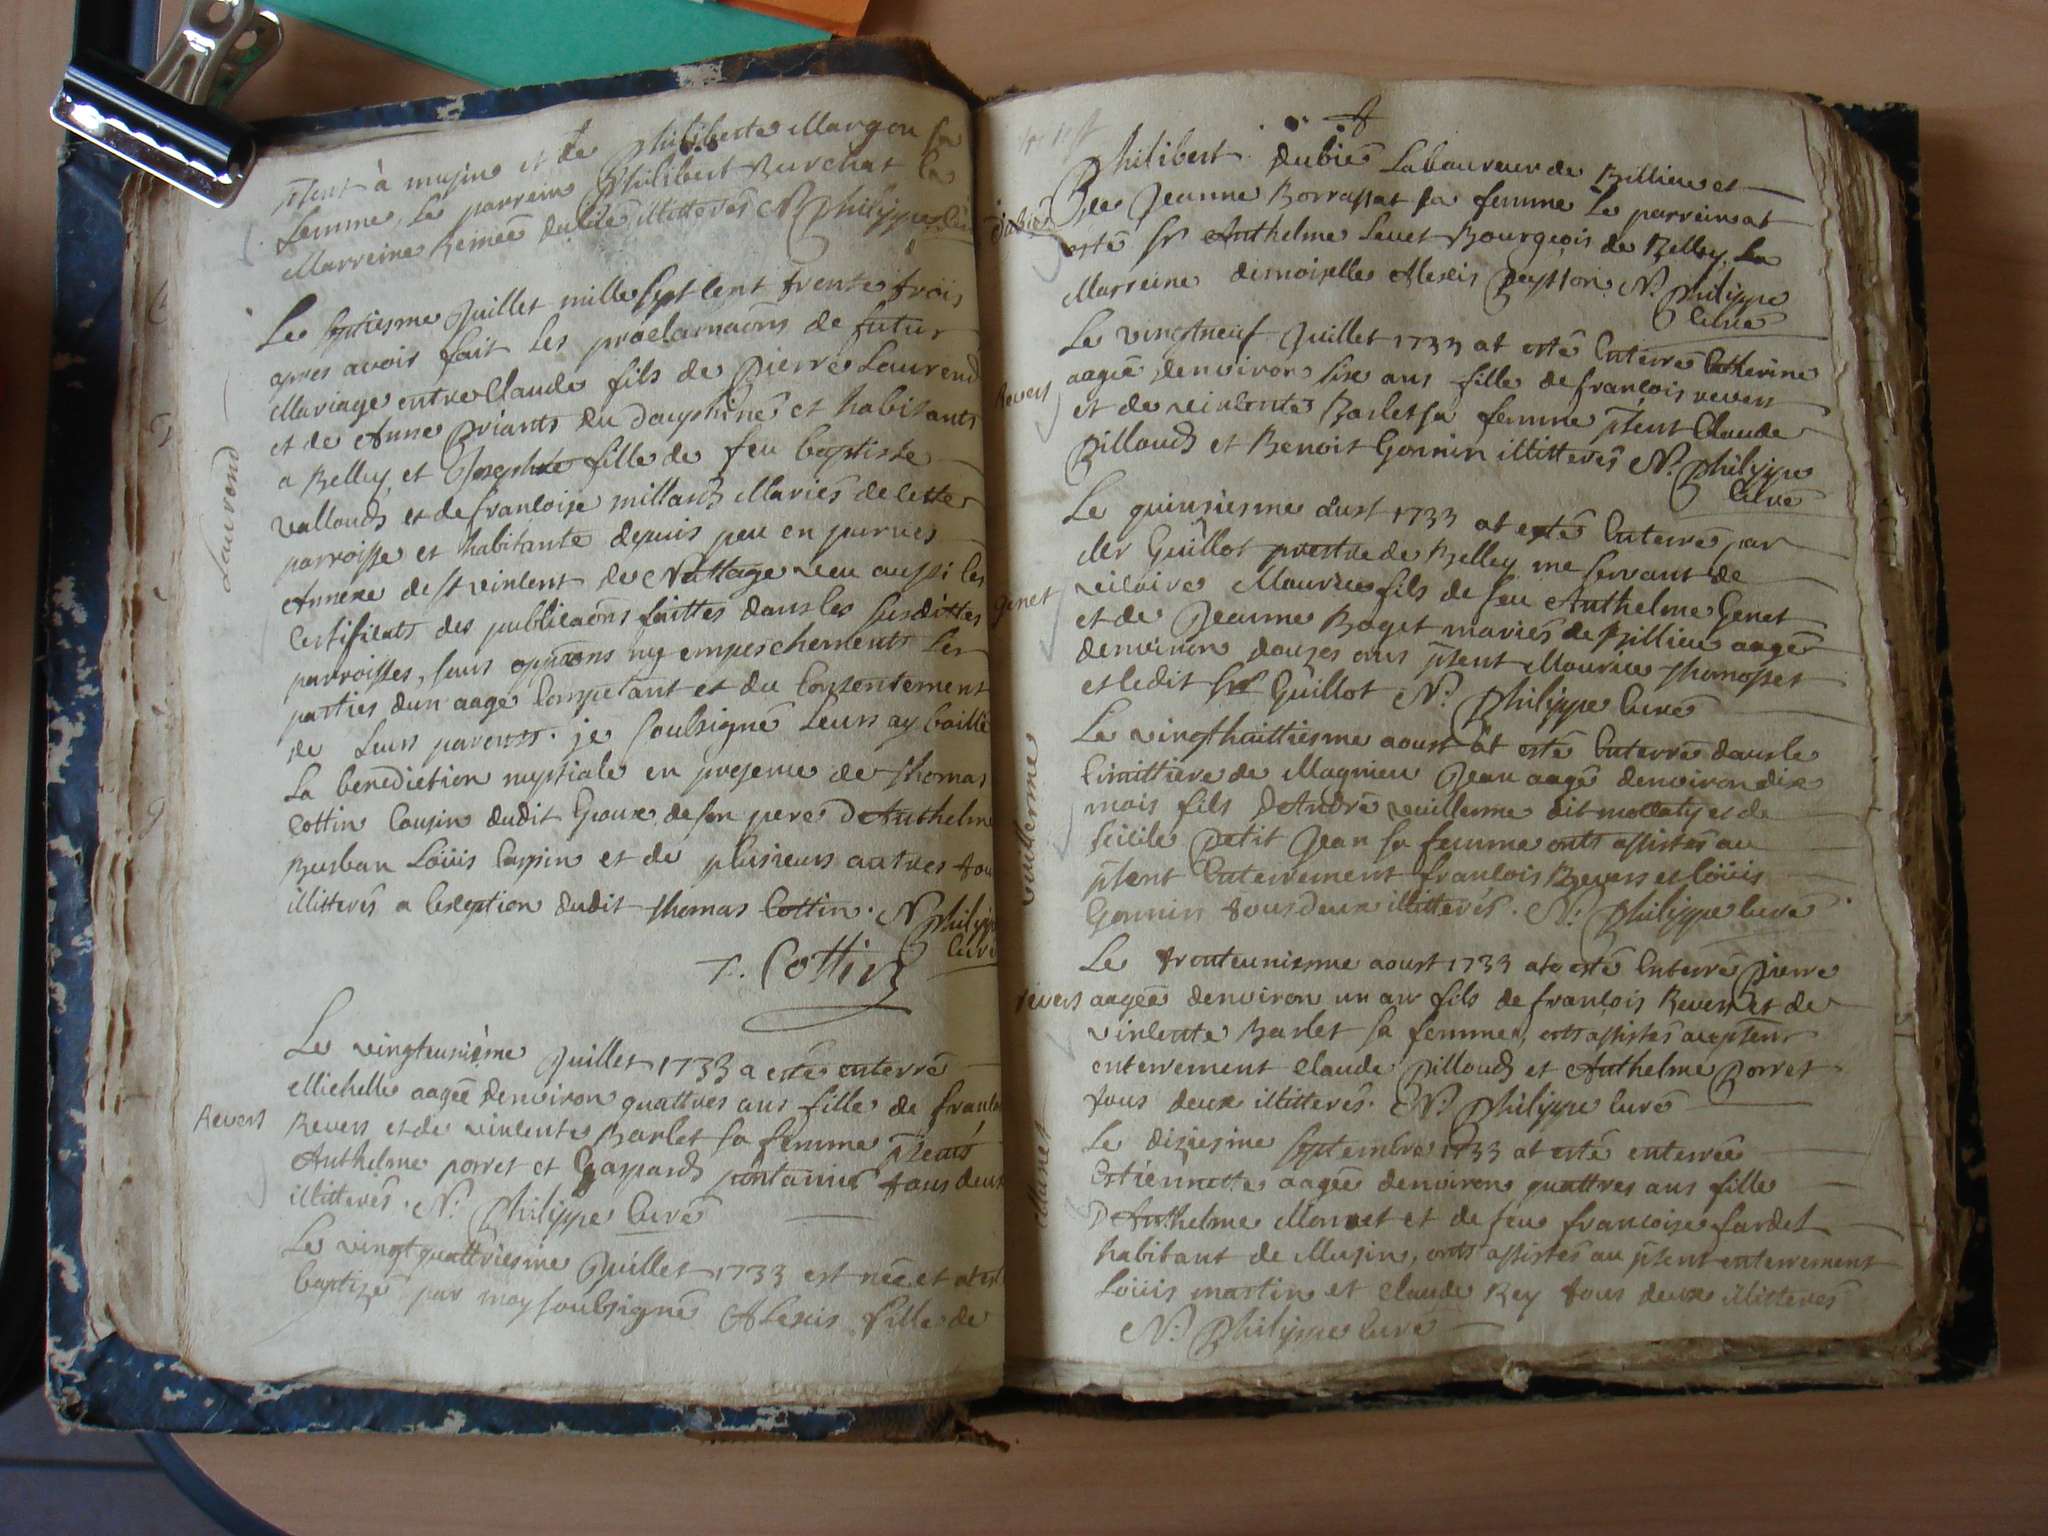 pñent à musin et de Philiberte Margon sa
femme, le parrein Philibert Burchat la
Marreine Reimée illitterés N Philippe
Laurend
Le septiesme Juillet mille sept cent trente trois
apres avoir fait les proclamaõns de futur
Mariage entre Claude fils de Pierre Laurend
et de Anne Briants du dauphiné et habitants
a Belley, et Josephte fille de feu baptiste
valloud et de francoise millard Mariés de cette
parroisse et habitante depuis peu en
Annexe de st vincent de veu aussi les
Certificats des publicaõns faittes dans les susdittes
parroisses, sans opp̃ons ny empeschements Les
parties dun aage Competant et du Consentement
de Leurs parents. je soubsigné Leurs ay baillé
La benediction nuptiale en presence de thomas
Cottin Cousin dudit Epoux de son pere D'Anthelme
Burban Loüis Cassin et de plusieurs autres tous
illitterés a lexception dudit thomas Cottin. N Philippe
Curé
T. Cottin
Le vingteunième Juillet 1733 a esté enterré
Michelle aagée denviron quattres ans fille de francois
Revers
Revers et de vincente Barlet sa femme pñents
Anthelme porret et Gaspard pontanier tous deux
illitterés. N. Philippe Curé
Le vingt quattriesme Juillet 1733 est née et at esté
baptizé par moy soubsigné Alexis fille de
Philibert dubié Laboureur de Billieu et
Dubié
de Jeanne Borrassat sa femme Le parrein at
esté sr Anthelme Levet Bourgeois de Belley, La
Marreine demoiselle Alexis Peysson N. Philippe
Curé
Le vingtneuf Juillet 1733 at esté Enterré Catherine
aagée denviron six ans fille de francois revers
Revers
et de vincente Barlet sa femme pñent Claude
Billoud et Benoit Gonnin illitterés N. Philippe
Curé
Le quinsiesme aust 1733 at esté Enterré par
Mr Guillot prestre de Belley me servant de
vicaire Maurice fils de feu Anthelme Genet
Genet
et de Jeanne Boget mariés de Billieu aagé
denviron douzes ans pñent Maurice thomasset
et ledit Sr Guillot N. Philippe Curé
Le vingthuittiesme aoust at esté Enterré dans le
Cimittiere de Magnieu Jean aagé denviron dix
vuillerme
mois fils D'André vuillerme dit mollaty et de
Cicile petit Jean sa femme onts assistés au
pñent Enterrement francois Revers et Loüis
Gonnin tous deux illitterés. N. Philippe Curé
Le trenteuniesme aoust 1733 at esté Enterré Pierre
Revers
aagée denviron un an fils de francois Revers et de
vincente Barlet sa femme, onts assistés au pñent
enterrement Claude Billoud et Anthelme Porret
tous deux illitterés. N. Philippe Curé
Le diziesme septembre 1733 at esté enterrée
Estiennette aagée denviron quattres ans fille
D'Anthelme Monnet et de feu francoise fardel
habitant de Musin, onts assistés au pñent enterrement
Loüis martin et Claude Rey tous deux illitterés
N. Philippe Curé